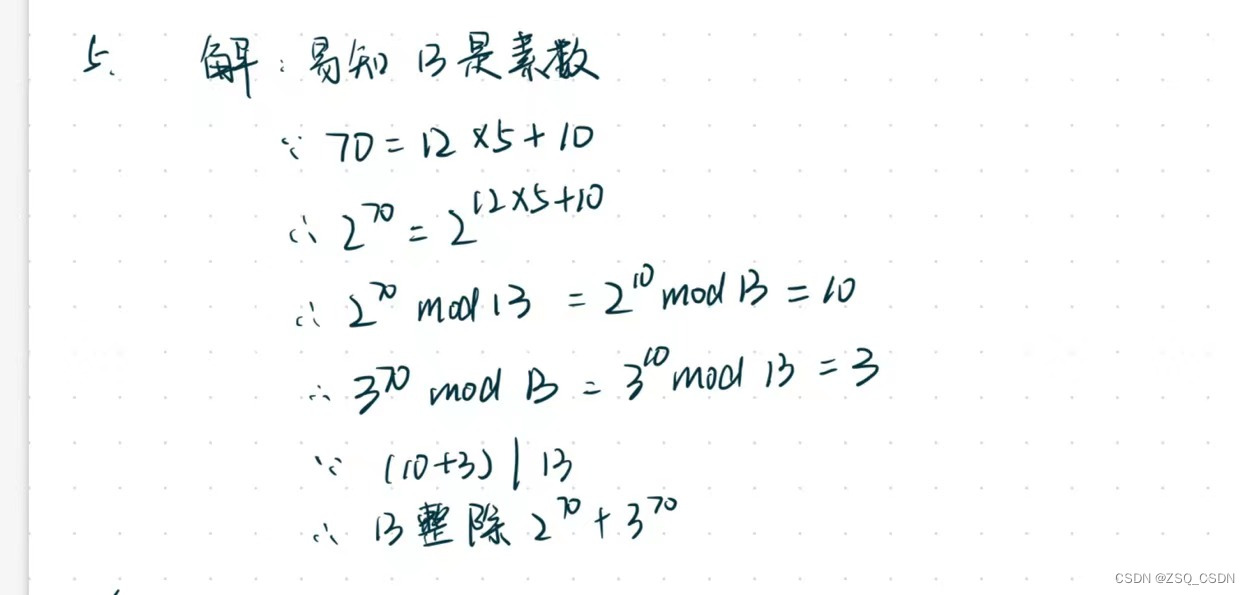 5. 解：易知 13是素数
∵ 70 = 12 × 5 + 10
∴ 2^70 = 2^12×5+10
∴ 2^70 mod 13 = 2^10 mod 13 = 10
∴ 3^70 mod 13 = 3^10 mod 13 = 3
∵ (10+3) | 13
∴ 13 整除 2^70 + 3^70
CSDN @ZSQ_CSDN